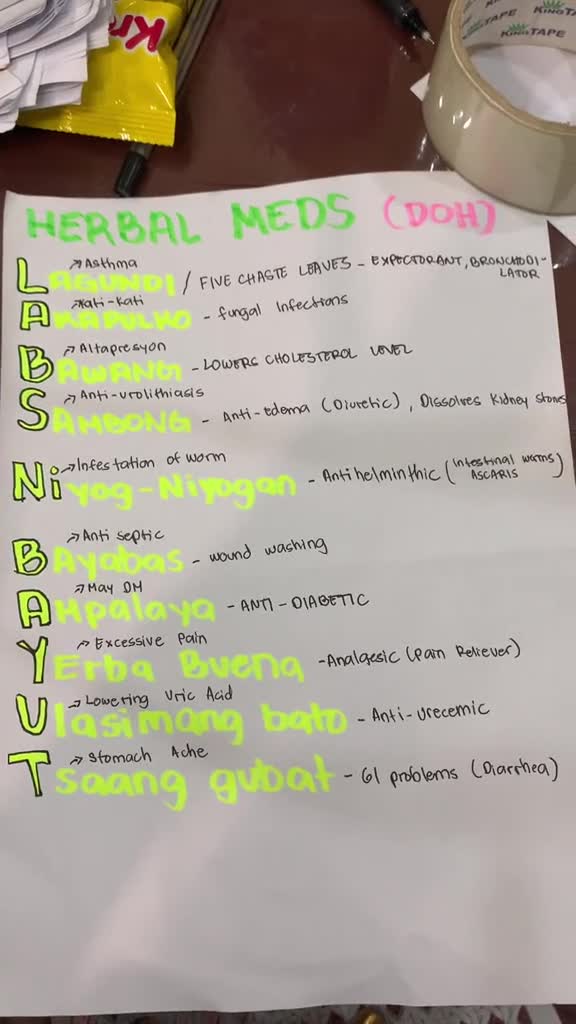 Kr
KING TAPE
KING TAPE
HERBAL MEDS (DOH)
↗Asthma
LAGUNDI / FIVE CHASTE LEAVES - EXPECTORANT, BRONCHODI-
LATOR
↗Kati-kati
AKAPULKO - fungal Infections
↗Altapresyon
BAWANG - LOWERS CHOLESTEROL LEVEL
↗Anti-urolithiasis
SAMBONG - Anti-edema (Diuretic), Dissolves Kidney stones
↗Infestation of worm
Niyog-Niyogan - Antihelminthic (Intestinal worms)
ASCARIS
↗Anti septic
BAyabas - wound washing
↗May DM
AMpalaya - ANTI-DIABETIC
↗Excessive Pain
YErba Buena - Analgesic (Pain Reliever)
↗Lowering Uric Acid
Ulasimang bato - Anti-urecemic
↗Stomach Ache
Tsaang gubat - GI problems (Diarrhea)